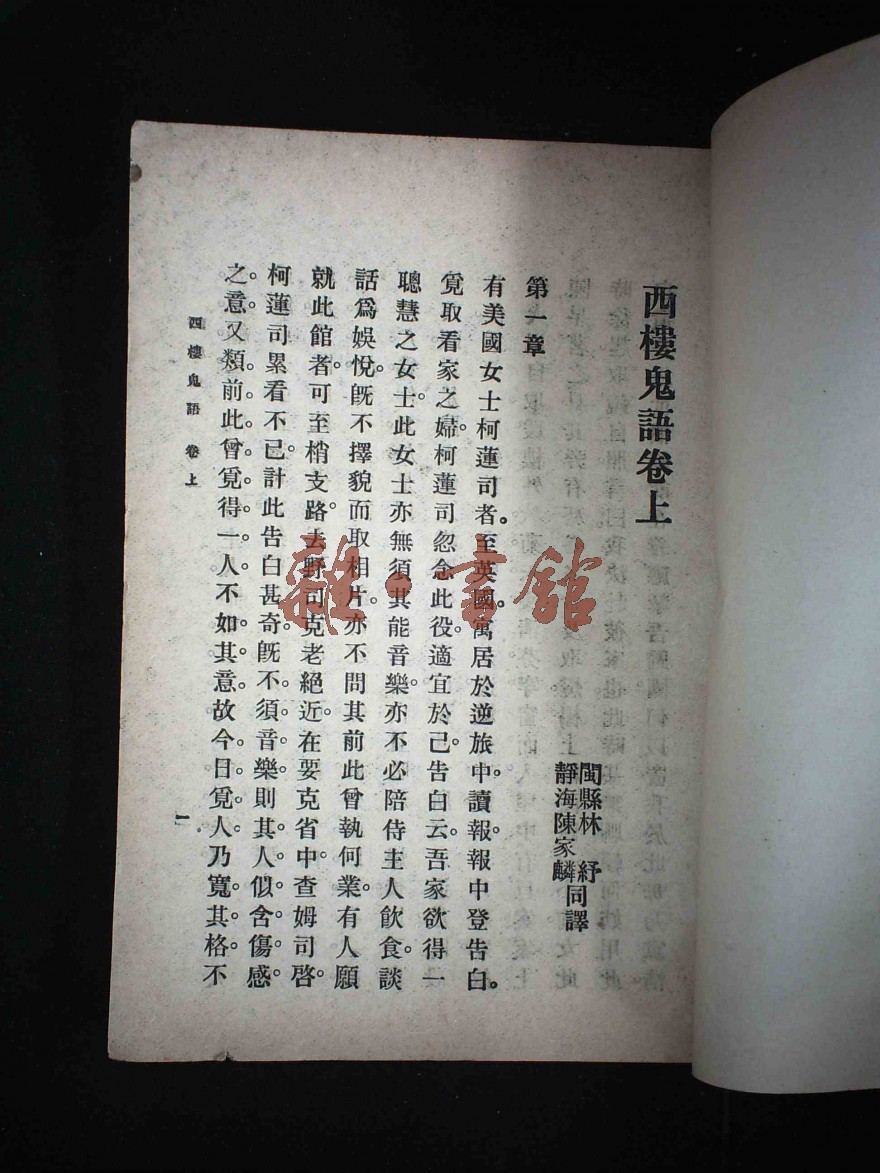 西樓鬼語卷上
閩縣林 紓
靜海陳家麟同譯
第一章
有美國女士柯蓮司者。至英國。寓居於逆旅中。讀報。報中登告白。
覓取看家之婦。柯蓮司忽念此役適宜於己。告白云。吾家欲得一
聰慧之女士。此女士亦無須其能音樂。亦不必陪侍主人飲食。談
話爲娛悅。旣不擇貌而取相片。亦不問其前此曾執何業。有人願
就此館者。可至梢支路。去野司克老絕近。在要克省中。查姆司啓。
柯蓮司累看不已。計此告白甚奇。旣不須音樂。則其人似含傷感
之意。又類前此曾覓得一人。不如其意。故今日覓人。乃寬其格。不
西樓鬼語 卷上
一
雜·書館